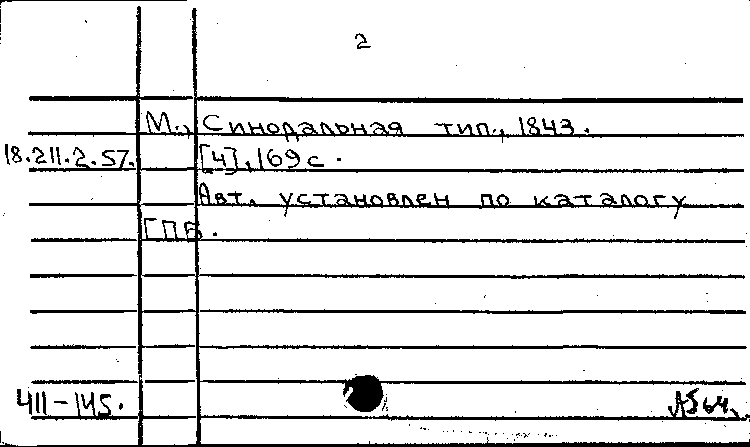 2
М., Синодальная тип., 1843.
18.211.2.57. [4], 169 с.
Авт. установлен по каталогу
ГПБ.
411-145.